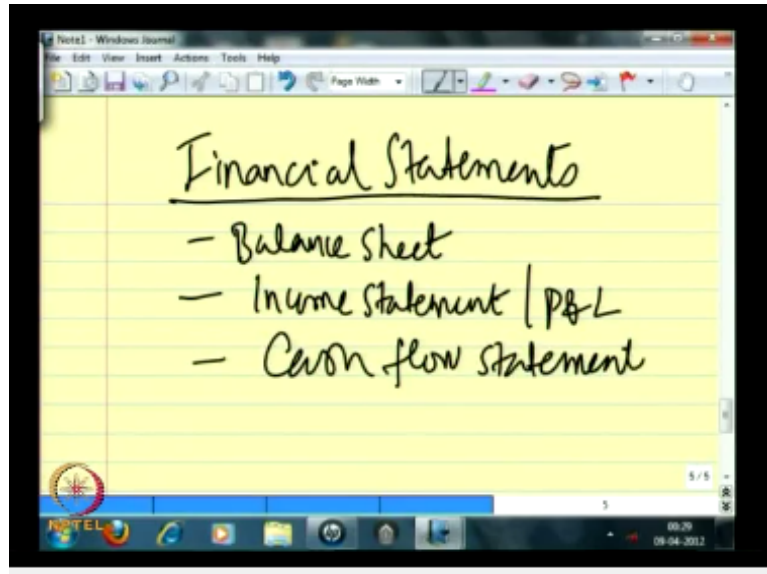 Note1 - Windows Journal
File Edit View Insert Actions Tools Help
Page Width
Financial Statements
- Balance sheet
- Income statement | P&L
- Cash flow statement
5/5
5
NPTEL
00:29
09-04-2012